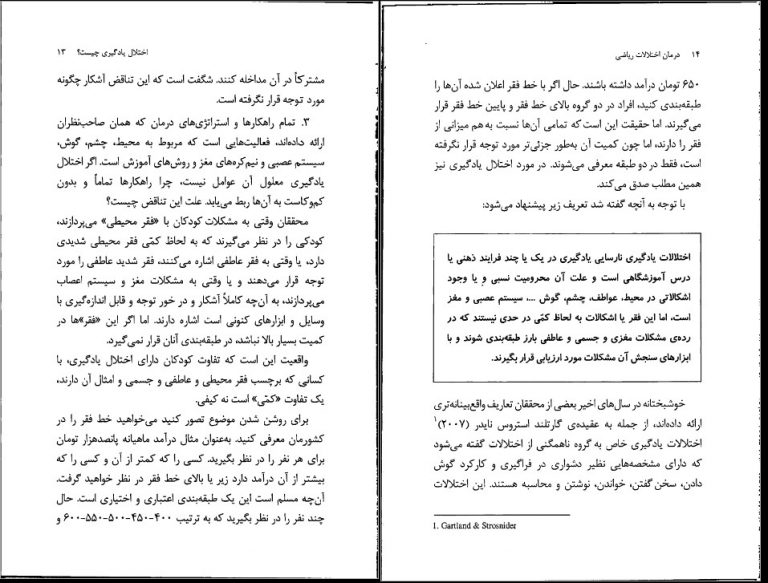 اختلال یادگیری چیست؟ ۱۳
مشترکاً در آن مداخله کنند. شگفت است که این تناقض آشکار چگونه
مورد توجه قرار نگرفته است.
۳. تمام راهکارها و استراتژی‌های درمان که همان صاحب‌نظران
ارائه داده‌اند، فعالیت‌هایی است که مربوط به محیط، چشم، گوش،
سیستم عصبی و نیم‌کره‌های مغز و روش‌های آموزش است. اگر اختلال
یادگیری معلول آن عوامل نیست، چرا راهکارها تماماً و بدون
کم‌وکاست به آن‌ها ربط می‌یابد. علت این تناقض چیست؟
محققان وقتی به مشکلات کودکان با «فقر محیطی» می‌پردازند،
کودکی را در نظر می‌گیرند که به لحاظ کمّی فقر محیطی شدیدی
دارد، یا وقتی به فقر عاطفی اشاره می‌کنند، فقر شدید عاطفی را مورد
توجه قرار می‌دهند و یا وقتی به مشکلات مغز و سیستم اعصاب
می‌پردازند، به آن‌چه کاملاً آشکار و در خور توجه و قابل اندازه‌گیری با
وسایل و ابزارهای کنونی است اشاره دارند. اما اگر این «فقر»ها در
کمیت بسیار بالا نباشد، در طبقه‌بندی آنان قرار نمی‌گیرد.
واقعیت این است که تفاوت کودکان دارای اختلال یادگیری، با
کسانی که برچسب فقر محیطی و عاطفی و جسمی و امثال آن دارند،
یک تفاوت «کمّی» است نه کیفی.
برای روشن شدن موضوع تصور کنید می‌خواهید خط فقر را در
کشورمان معرفی کنید. به‌عنوان مثال درآمد ماهیانه پانصدهزار تومان
برای هر نفر را در نظر بگیرید. کسی را که کمتر از آن و کسی را که
بیشتر از آن درآمد دارد زیر یا بالای خط فقر در نظر خواهید گرفت.
آن‌چه مسلم است این یک طبقه‌بندی اعتباری و اختیاری است. حال
چند نفر را در نظر بگیرید که به ترتیب ۴۰۰-۴۵۰-۵۰۰-۵۵۰-۶۰۰ و
۱۴ درمان اختلالات ریاضی
۶۵۰ تومان درآمد داشته باشند. حال اگر با خط فقر اعلان شده آن‌ها را
طبقه‌بندی کنید، افراد در دو گروه بالای خط فقر و پایین خط فقر قرار
می‌گیرند. اما حقیقت این است که تمامی آن‌ها نسبت به هم میزانی از
فقر را دارند، اما چون کمیت آن به‌طور جزئی‌تر مورد توجه قرار نگرفته
است، فقط در دو طبقه معرفی می‌شوند. در مورد اختلال یادگیری نیز
همین مطلب صدق می‌کند.
با توجه به آنچه گفته شد تعریف زیر پیشنهاد می‌شود:
اختلالات یادگیری نارسایی یادگیری در یک یا چند فرایند ذهنی یا
درس آموزشگاهی است و علت آن محرومیت نسبی و یا وجود
اشکالاتی در محیط، عواطف، چشم، گوش ...، سیستم عصبی و مغز
است، اما این فقر یا اشکالات به لحاظ کمّی در حدی نیستند که در
رده‌ی مشکلات مغزی و جسمی و عاطفی بارز طبقه‌بندی شوند و با
ابزارهای سنجش آن مشکلات مورد ارزیابی قرار بگیرند.
خوشبختانه در سال‌های اخیر بعضی از محققان تعاریف واقع‌بینانه‌تری
ارائه داده‌اند، از جمله به عقیده‌ی گارتلند استروس نایدر (۲۰۰۷)۱
اختلالات یادگیری خاص به گروه ناهمگنی از اختلالات گفته می‌شود
که دارای مشخصه‌هایی نظیر دشواری در فراگیری و کارکرد گوش
دادن، سخن گفتن، خواندن، نوشتن و محاسبه هستند. این اختلالات
1. Gartland & Strosnider